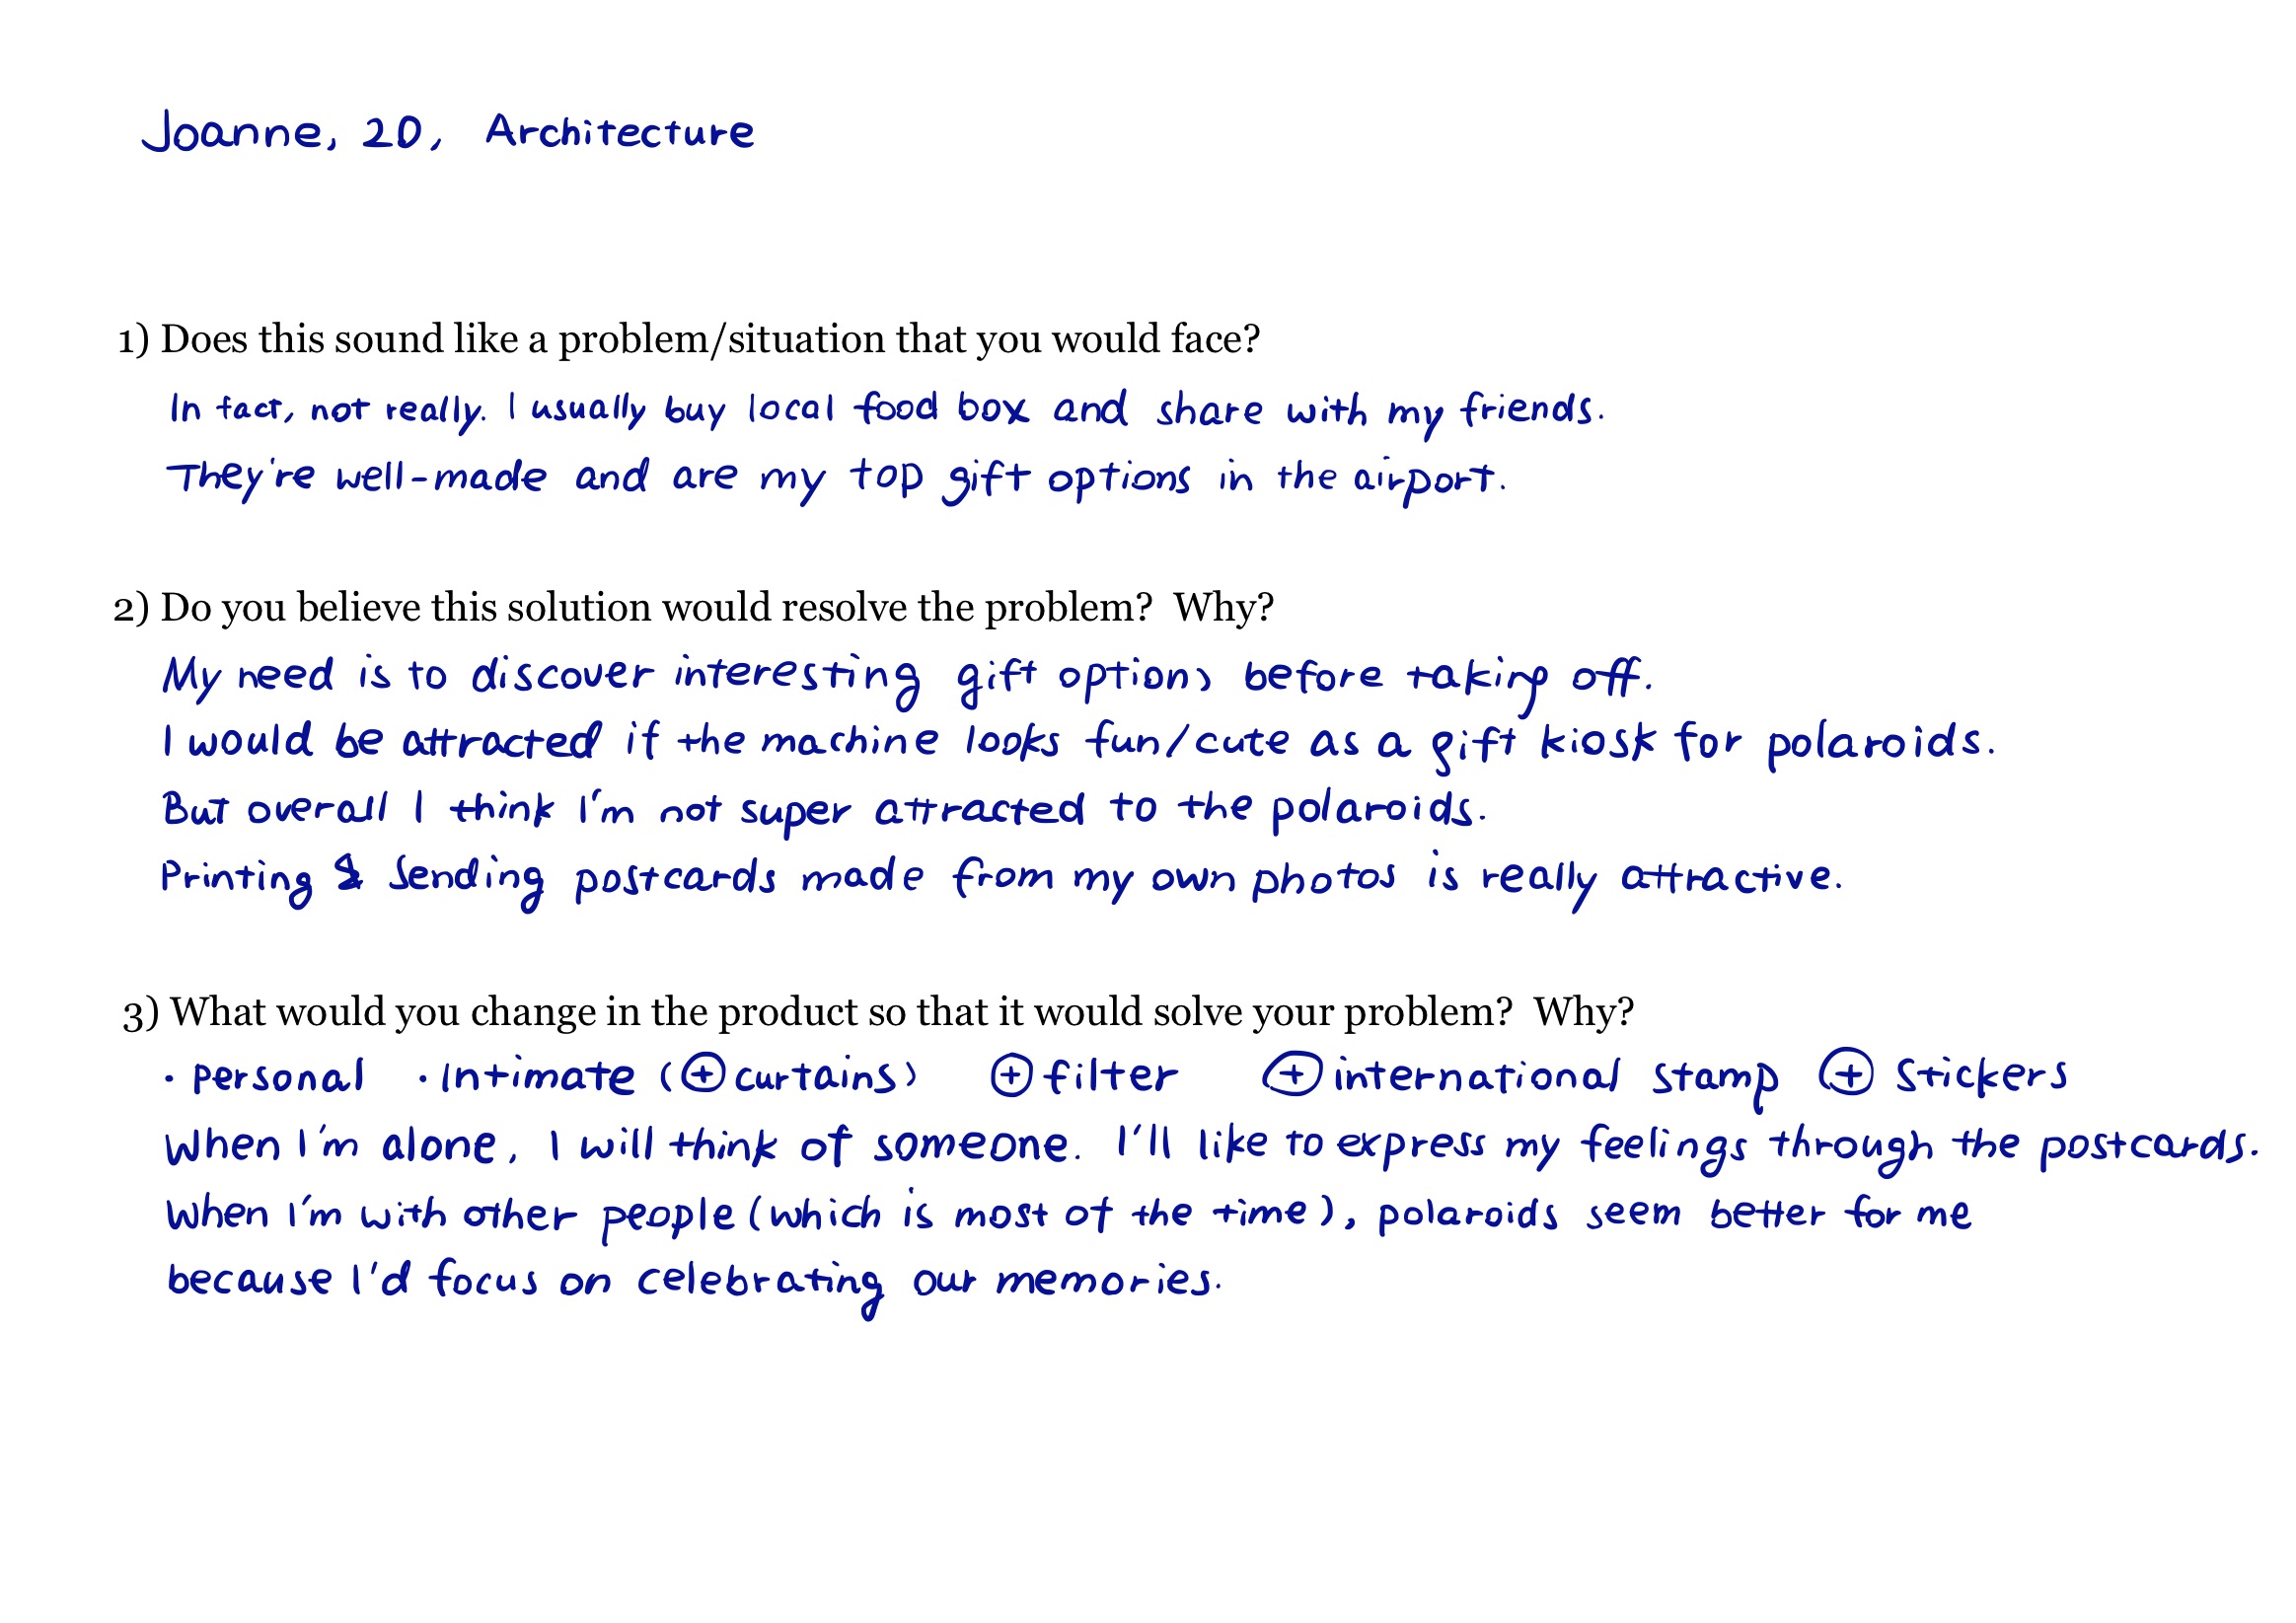 Joanne, 20, Architecture
1) Does this sound like a problem/situation that you would face?
In fact, not really. I usually buy local food box and share with my friends.
They're well-made and are my top gift options in the airport.
2) Do you believe this solution would resolve the problem? Why?
My need is to discover interesting gift options before taking off.
I would be attracted if the machine looks fun/cute as a gift kiosk for polaroids.
But overall I think I'm not super attracted to the polaroids.
Printing & Sending postcards made from my own photos is really attractive.
3) What would you change in the product so that it would solve your problem? Why?
· personal · Intimate (⊕ curtains) ⊕ filter ⊕ international stamp ⊕ Stickers
When I'm alone, I will think of someone. I'll like to express my feelings through the postcards.
When I'm with other people (which is most of the time), polaroids seem better for me
because I'd focus on celebrating our memories.